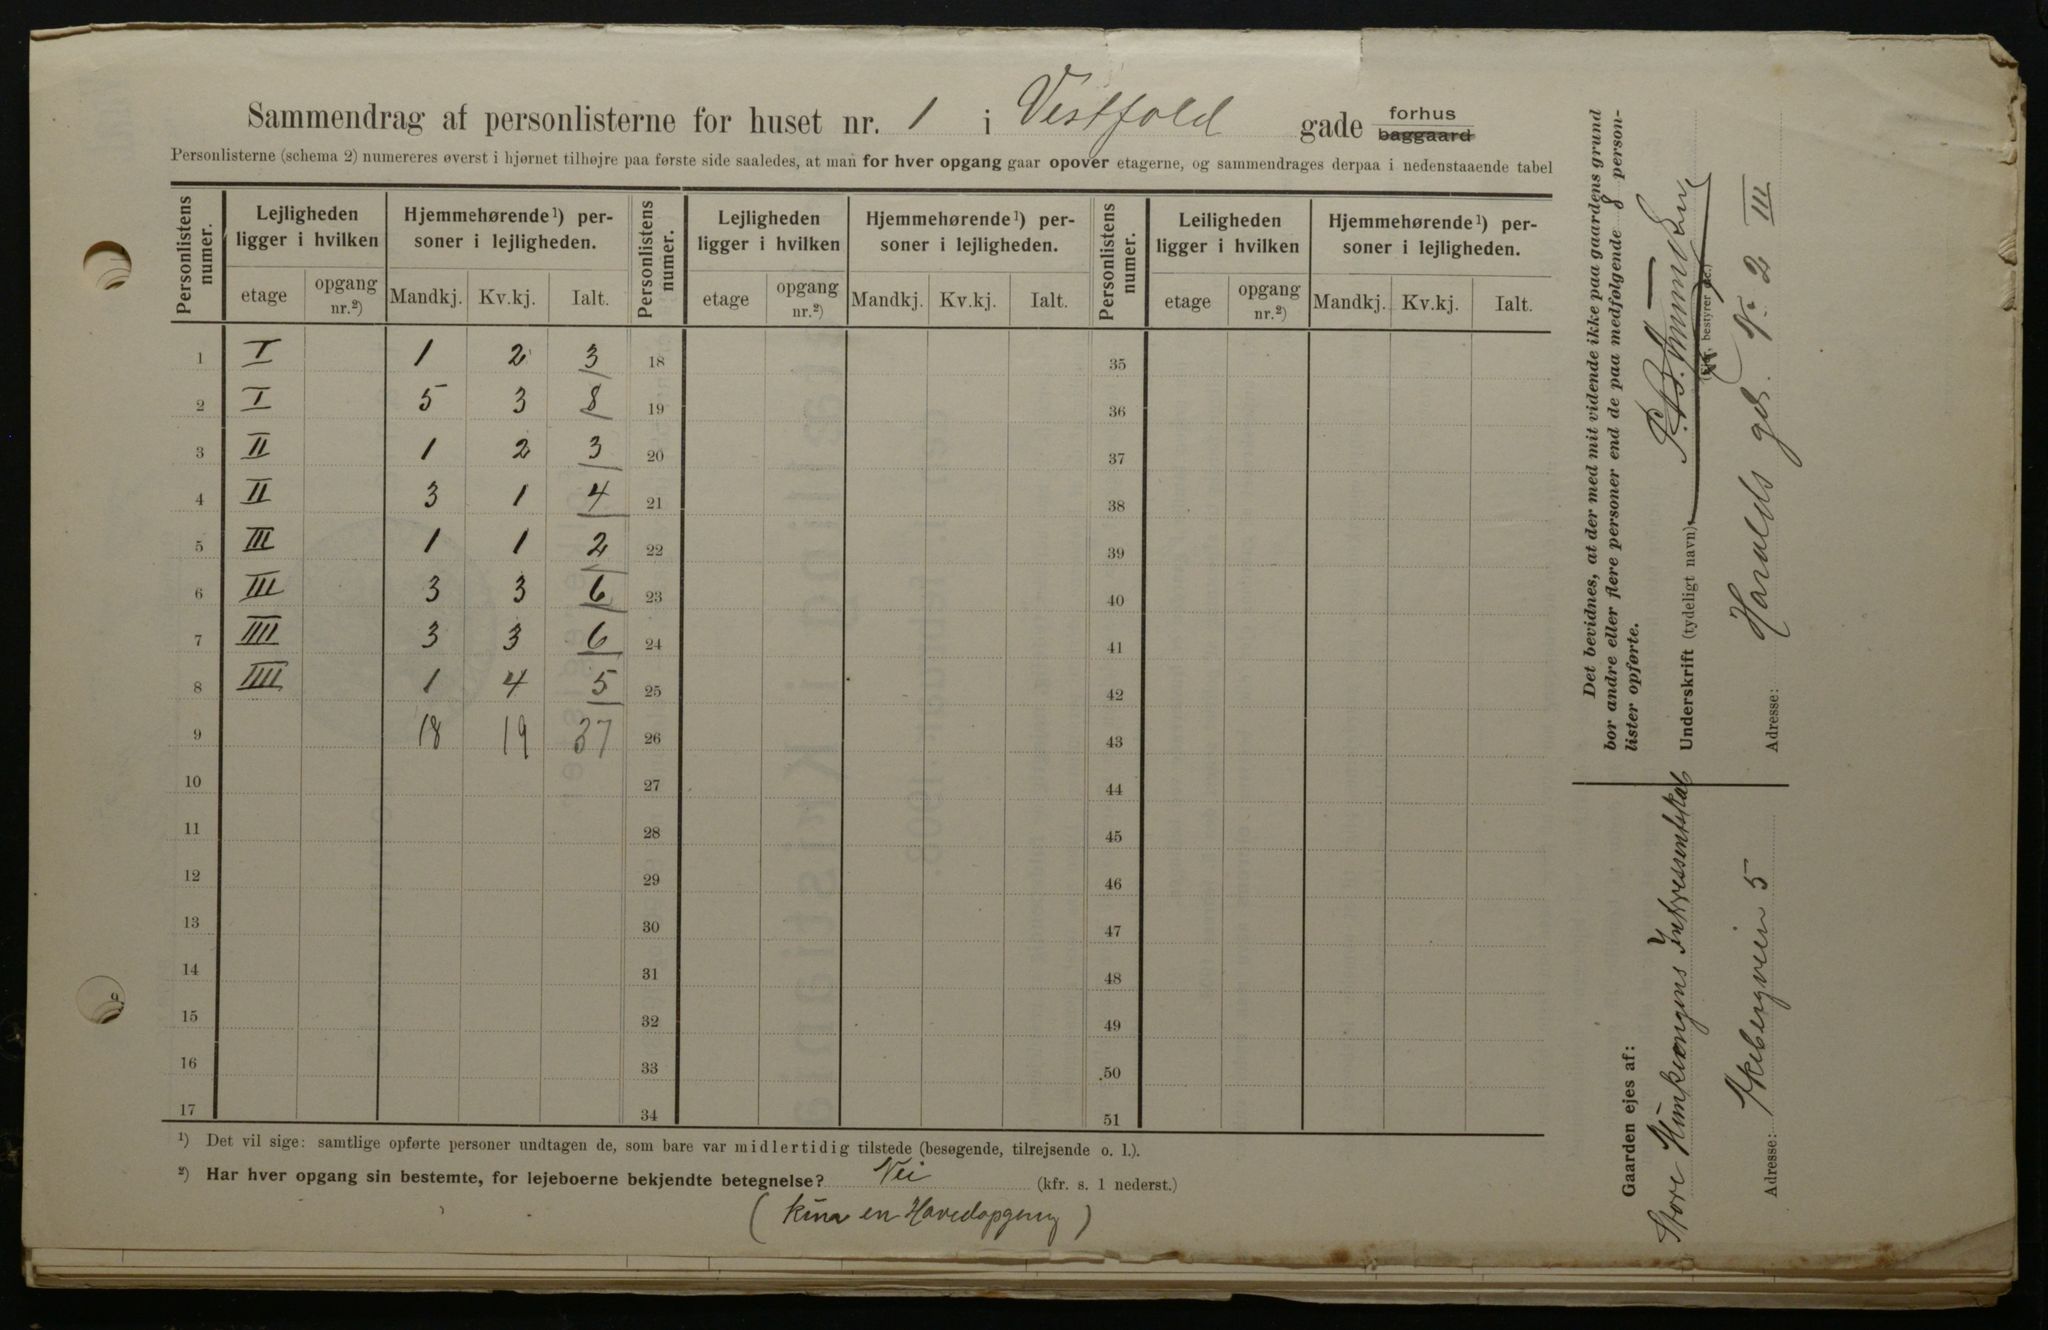 Sammendrag af personlisterne for huset nr. 1 i Vestfold gade forhus baggaard
Personlisterne (schema 2) numereres øverst i hjørnet tilhøjre paa første side saaledes, at man for hver opgang gaar opover etagerne, og sammendrages derpaa i nedenstaaende tabel
Personlistens numer. Lejligheden ligger i hvilken Hjemmehørende¹) personer i lejligheden. Personlistens numer. Lejligheden ligger i hvilken Hjemmehørende¹) personer i lejligheden. Personlistens numer. Leiligheden ligger i hvilken Hjemmehørende¹) personer i lejligheden.
etage opgang nr.²) Mandkj. Kv.kj. Ialt. etage opgang nr.²) Mandkj. Kv.kj. Ialt. etage opgang nr.²) Mandkj. Kv.kj. Ialt.
1 I 1 2 3 18 35
2 I 5 3 8 19 36
3 II 1 2 3 20 37
4 II 3 1 4 21 38
5 III 1 1 2 22 39
6 III 3 3 6 23 40
7 IIII 3 3 6 24 41
8 IIII 1 4 5 25 42
9 18 19 37 26 43
10 27 44
11 28 45
12 29 46
13 30 47
14 31 48
15 32 49
16 33 50
17 34 51
¹) Det vil sige: samtlige opførte personer undtagen de, som bare var midlertidig tilstede (besøgende, tilrejsende o. l.).
²) Har hver opgang sin bestemte, for lejeboerne bekjendte betegnelse? Nei (kfr. s. 1 nederst.)
(kun en Hovedopgang)
Det bevidnes, at der med mit vidende ikke paa gaardens grund
bor andre eller flere personer end de paa medfølgende 8 person-
lister opførte.
Underskrift (tydeligt navn):
(Ejer, bestyrer etc.)
Adresse: Haralds gd. No 2 III
Gaarden ejes af:
Store Interessentskab
Adresse: Akebergveien 5